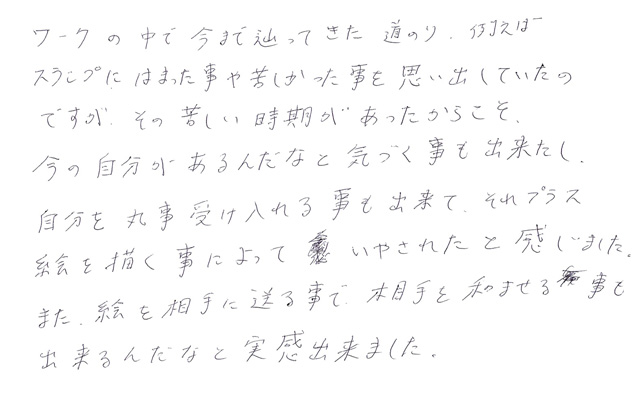 ワークの中で今まで辿ってきた道のり、例えば
スランプにはまった事や苦しかった事を思い出していたの
ですが、その苦しい時期があったからこそ、
今の自分があるんだなと気づく事も出来たし、
自分を丸事受け入れる事も出来て、それプラス
絵を描く事によって いやされたと感じました。
また、絵を相手に送る事で、相手を和ませる事も
出来るんだなと実感出来ました。